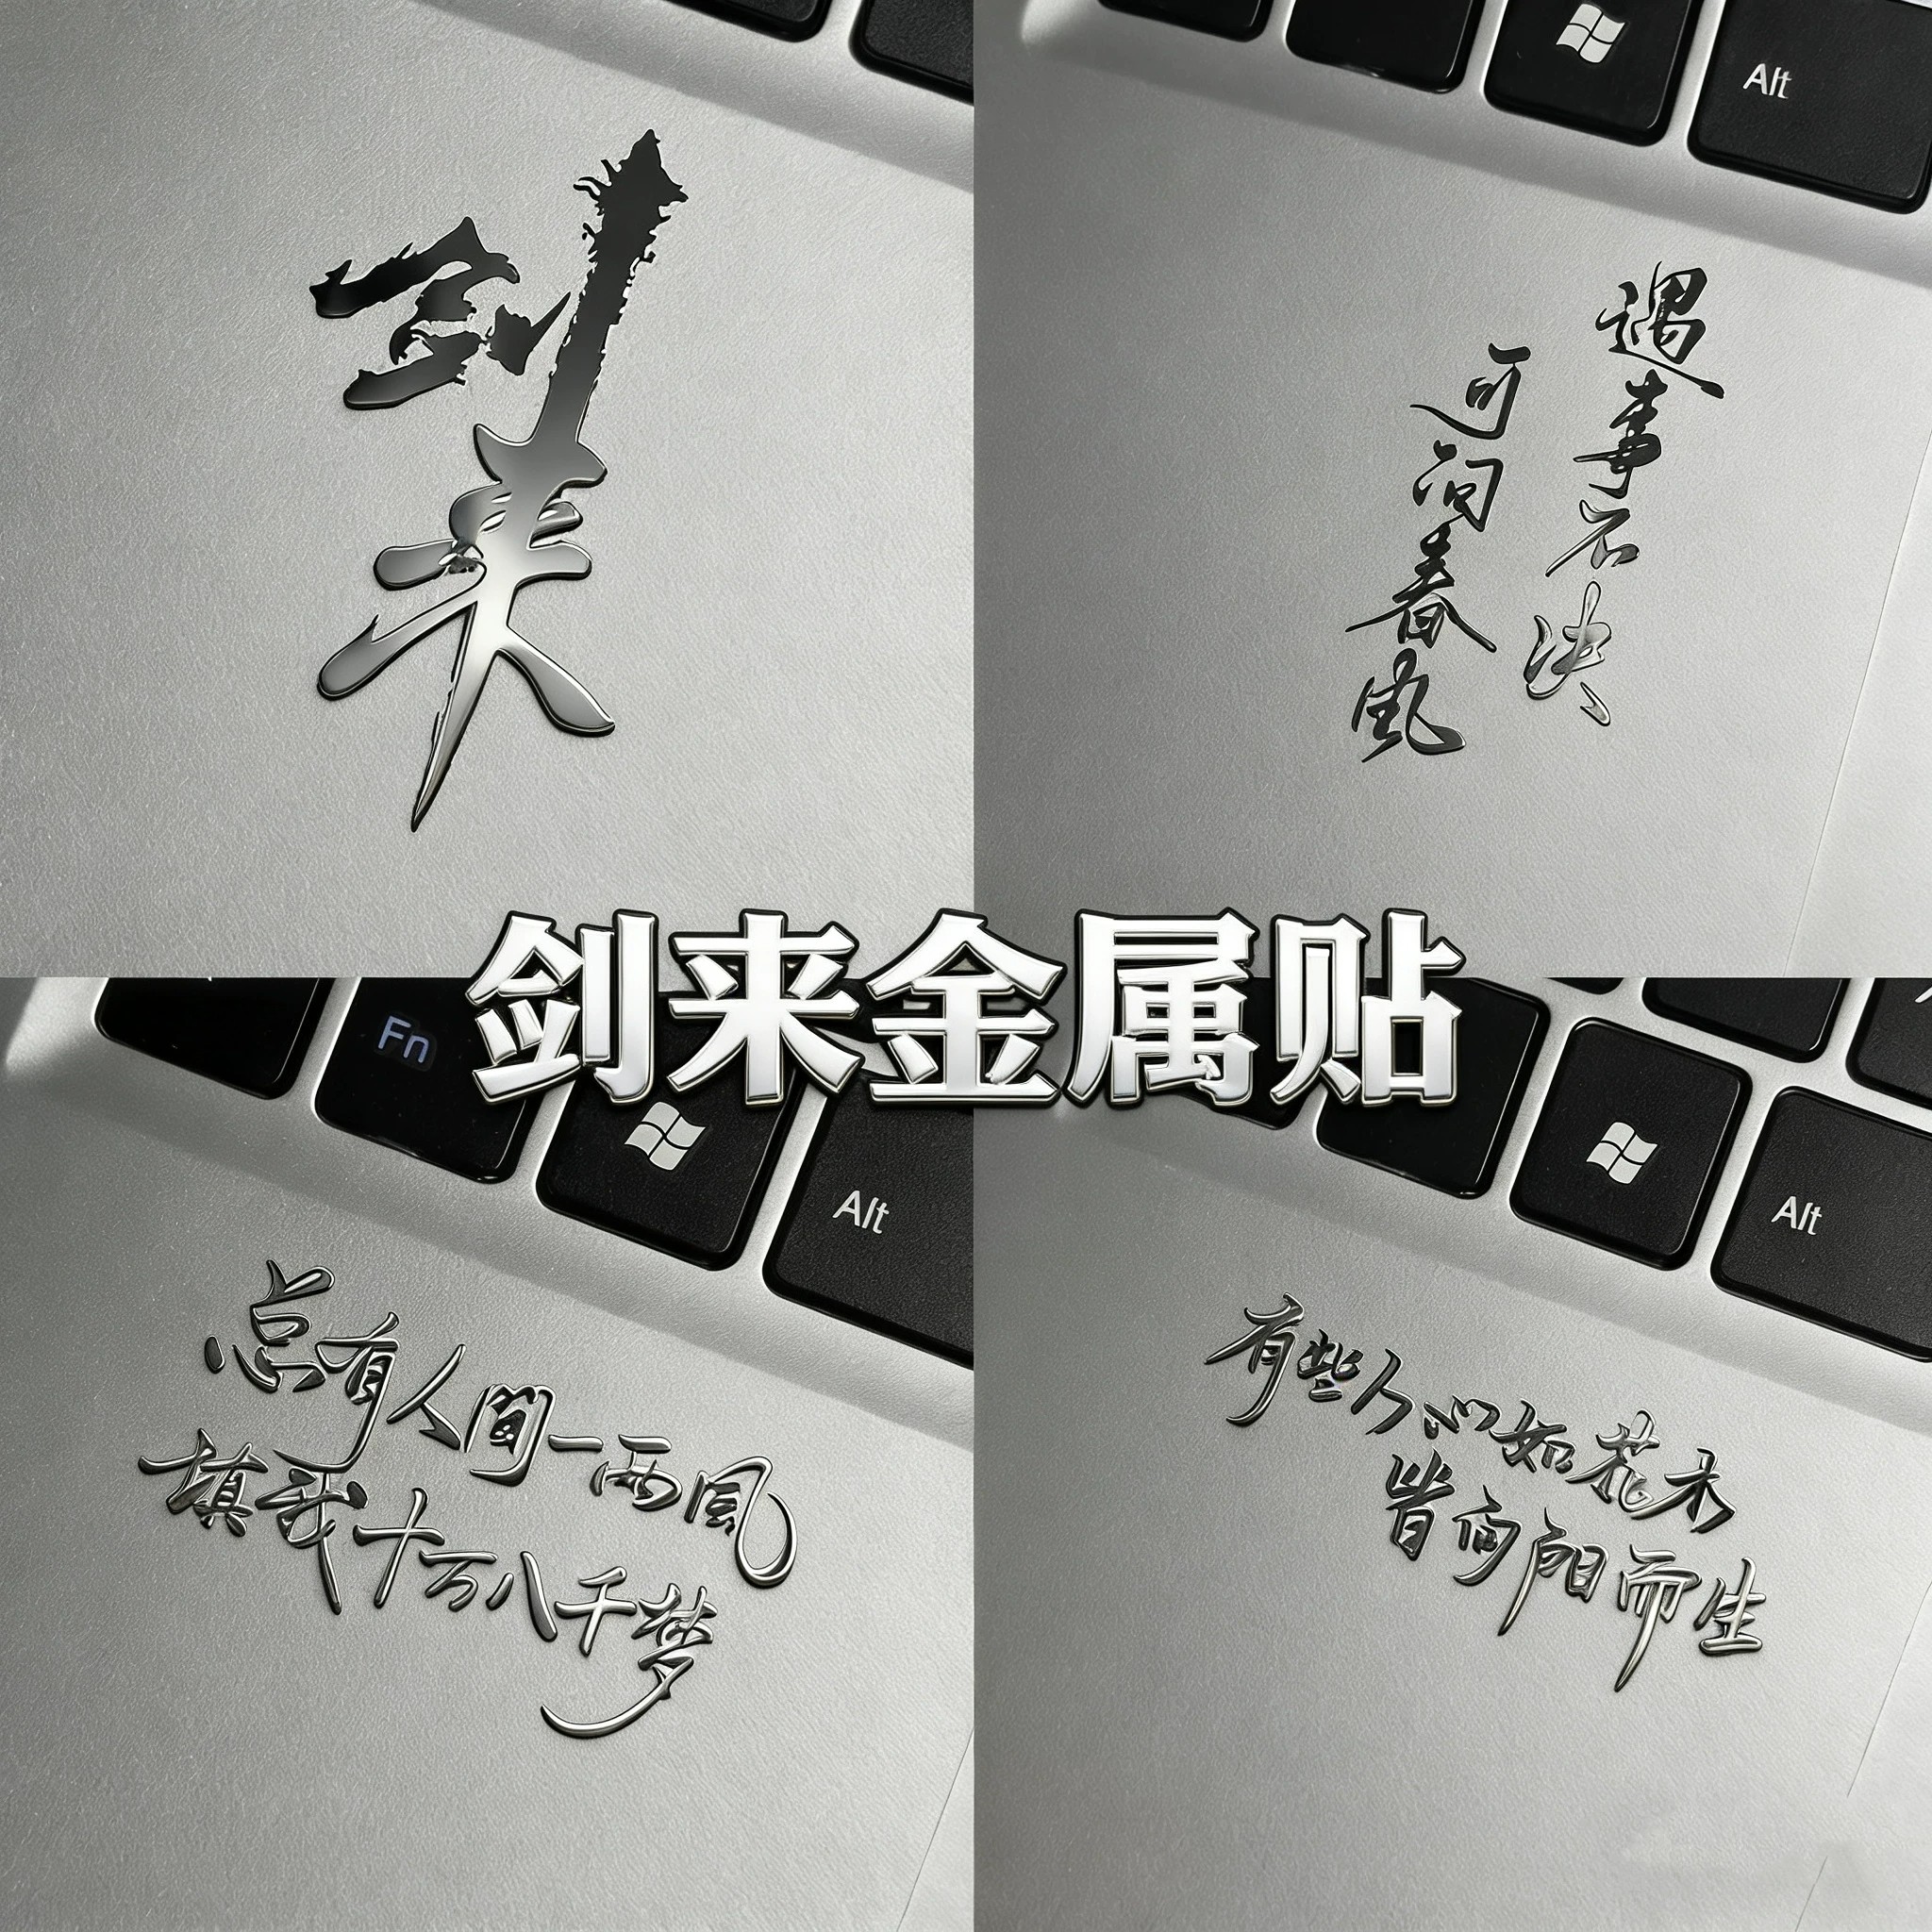 剑来
Alt
遇事不决
可问春风
剑来金属贴
Fn
Alt
总有人間一两風
填我十万八千梦
Alt
有些人心如花木
皆向阳而生